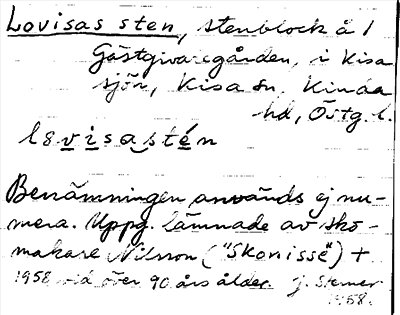 Lovisas sten, stenblock å 1
Gästgivaregården, i Kisa
sjön, Kisa sn, Kinda
hd, Östg. l.
lovisastén
Benämningen används ej nu-
mera. Uppg. lämnade av sko-
makare Nilsson ("Skonisse") +
1958 vid över 90 års ålder. J. Sterner
1958.